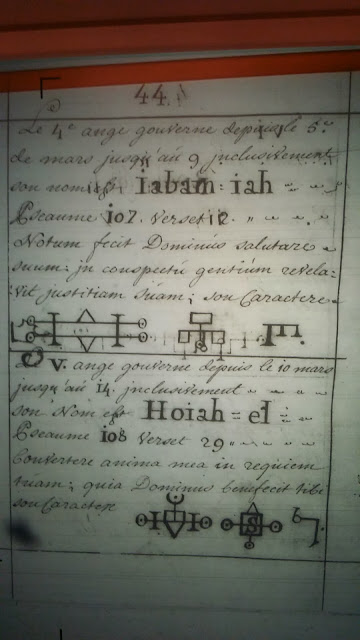 44
Le 4e ange gouverne depuis le 5.
de mars jusqu'au 9 jnclusivement
son nom est iabam = iah
Pseaume 107. verset 12
Notum fecit Dominus salutare
suum: jn conspectu gentium revela-
vit justitiam suam; son Caractere
Le V. ange gouverne depuis le 10 mars
jusqu'au 14 jnclusivement
son Nom est Hoiah = el
Pseaume 108 Verset 29
Convertere anima mea in requiem
tuam; quia Dominus benefecit tibi
son Caractere